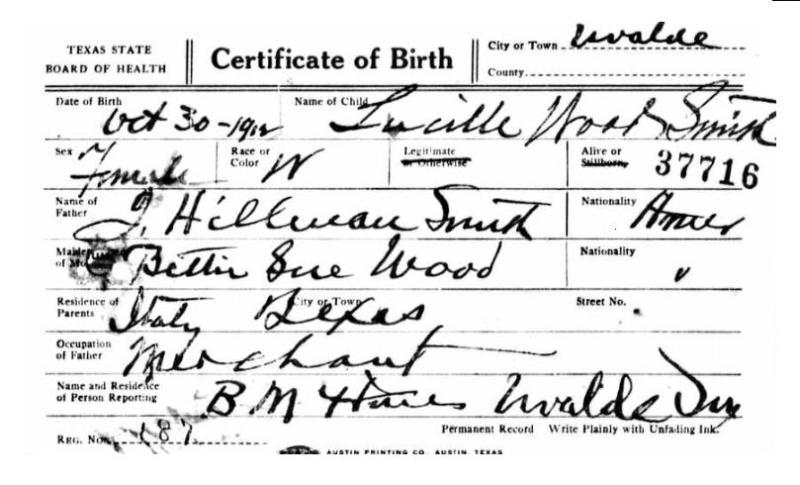 TEXAS STATE BOARD OF HEALTH
Certificate of Birth
City or Town Uvalde
County
Date of Birth Oct 30-1912 Name of Child Lucille Wood Smith
Sex Female Race or Color W Legitimate or Otherwise Alive or Stillborn 37716
Name of Father J. Hillman Smith Nationality Amer
Maiden of Bettie Sue Wood Nationality "
Residence of Parents Italy City or Town Texas Street No.
Occupation of Father Merchant
Name and Residence of Person Reporting B M Hines Uvalde
Permanent Record Write Plainly with Unfading Ink.
REG. No. 187
AUSTIN PRINTING CO. AUSTIN, TEXAS